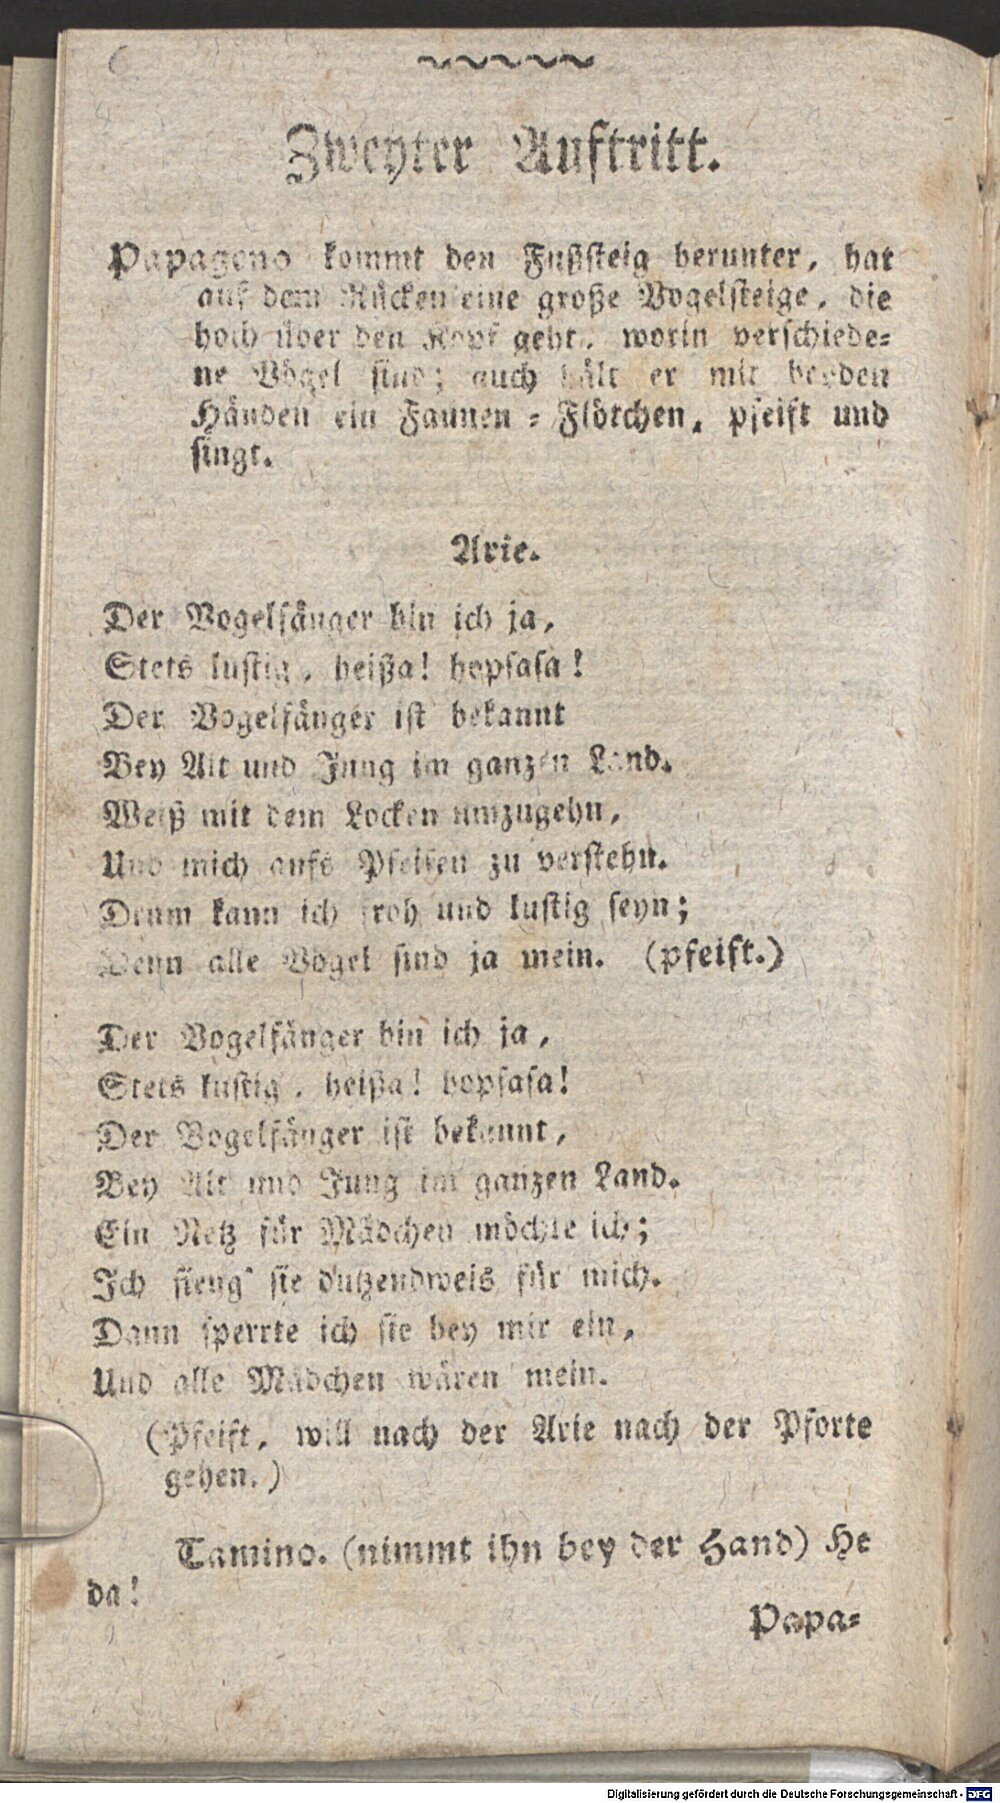 Zweyter Auftritt.
Papageno kommt den Fußsteig herunter, hat
auf dem Rücken eine große Vogelsteige, die
hoch über den Kopf geht, worin verschiede-
ne Vögel sind; auch hält er mit beyden
Händen ein Faunen-Flötchen, pfeift und
singt.
Arie.
Der Vogelfänger bin ich ja,
Stets lustig, heißa! hopsasa!
Der Vogelfänger ist bekannt
Bey Alt und Jung im ganzen Land.
Weiß mit dem Locken umzugehn,
Und mich aufs Pfeifen zu verstehn.
Drum kann ich froh und lustig seyn;
Denn alle Vögel sind ja mein. (pfeift.)
Der Vogelfänger bin ich ja,
Stets lustig, heißa! hopsasa!
Der Vogelfänger ist bekannt,
Bey Alt und Jung im ganzen Land.
Ein Netz für Mädchen möchte ich;
Ich fieng' sie dutzendweis für mich.
Dann sperrte ich sie bey mir ein,
Und alle Mädchen wären mein.
(Pfeift, will nach der Arie nach der Pforte
gehen.)
Tamino. (nimmt ihn bey der Hand) He
da!
Papa-
Digitalisierung gefördert durch die Deutsche Forschungsgemeinschaft - DFG